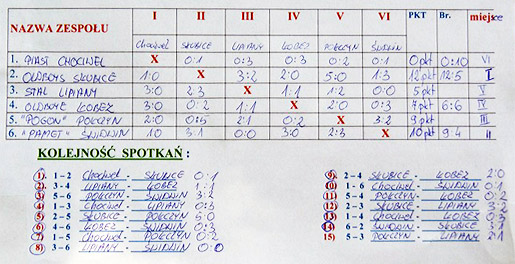 NAZWA ZESPOŁU I II III IV V VI PKT Br. miejsce
Chociwel SŁUBICE LIPIANY ŁOBEZ POŁCZYN ŚWIDWIN
1. PIAST CHOCIWEL X 0:1 0:3 0:3 0:2 0:1 0pkt 0:10 VI
2. OLDBOYS SŁUBICE 1:0 X 3:2 2:0 5:0 1:3 12pkt 12:5 I
3. STAL LIPIANY 3:0 2:3 X 1:1 1:2 0:0 5pkt V
4. OLDBOYE ŁOBEZ 3:0 0:2 1:1 X 2:0 0:3 7pkt 6:6 IV
5. "POGOŃ" POŁCZYN 2:0 0:5 2:1 0:2 X 3:2 9pkt III
6. "PAMET" ŚWIDWIN 1:0 3:1 0:0 3:0 2:3 X 10pkt 9:4 II
KOLEJNOŚĆ SPOTKAŃ :
1). 1 – 2 Chociwel - SŁUBICE 0:1
2). 3 – 4 LIPIANY - ŁOBEZ 1:1
3). 5 – 6 POŁCZYN - ŚWIDWIN 3:2
4). 1 – 3 Chociwel - LIPIANY 0:3
5). 2 – 5 SŁUBICE - POŁCZYN 5:0
6). 4 – 6 ŁOBEZ - ŚWIDWIN 0:3
7). 1 – 5 Chociwel - POŁCZYN 0:2
8). 3 – 6 LIPIANY - ŚWIDWIN 0:0
9). 2 – 4 SŁUBICE - ŁOBEZ 2:0
10) 1 – 6 Chociwel - ŚWIDWIN 0:1
11) 5 – 4 POŁCZYN - ŁOBEZ 0:2
12) 2 – 3 SŁUBICE - LIPIANY 3:2
13) 1 – 4 Chociwel - ŁOBEZ 0:3
14) 6 – 2 ŚWIDWIN - SŁUBICE 3:1
15) 5 – 3 POŁCZYN - LIPIANY 2:1